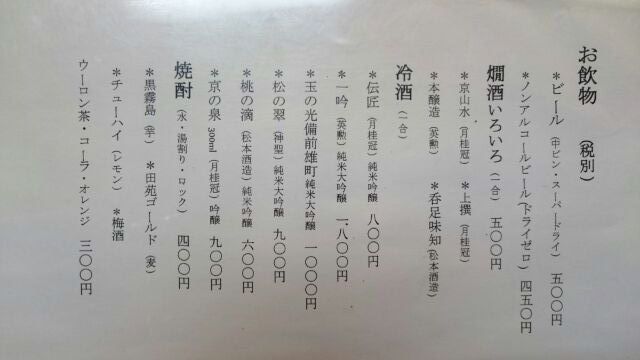 お飲物　（税別）
＊ビール（中ビン・スーパードライ）　五〇〇円
＊ノンアルコールビール（ドライゼロ）　四五〇円
燗酒いろいろ（一合）　五〇〇円
＊京山水（月桂冠）　＊上撰（月桂冠）
＊本醸造（英勲）　＊呑足味知（松本酒造）
冷酒（一合）
＊伝匠（月桂冠）純米吟醸　八〇〇円
＊一吟（英勲）純米大吟醸　一、八〇〇円
＊玉の光備前雄町純米大吟醸　一〇〇〇円
＊松の翠（神聖）純米大吟醸　九〇〇円
＊桃の滴（松本酒造）純米吟醸　六〇〇円
＊京の泉 300ml（月桂冠）吟醸　九〇〇円
焼酎（水・湯割り・ロック）　四〇〇円
＊黒霧島（芋）　＊田苑ゴールド（麦）
＊チューハイ（レモン）　＊梅酒
ウーロン茶・コーラ・オレンジ　三〇〇円